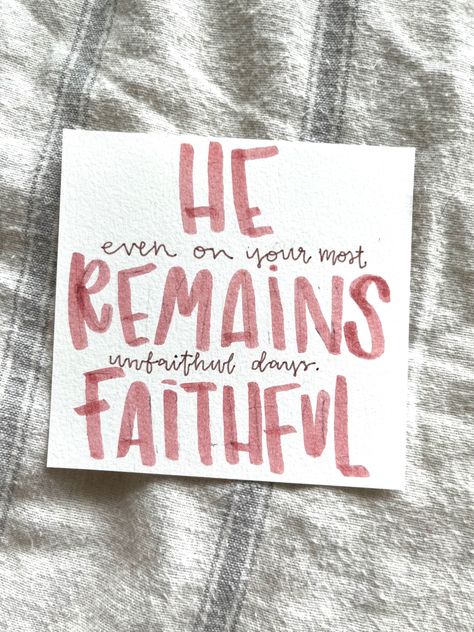 HE
even on your most
REMAINS
unfaithful days.
FAITHFUL